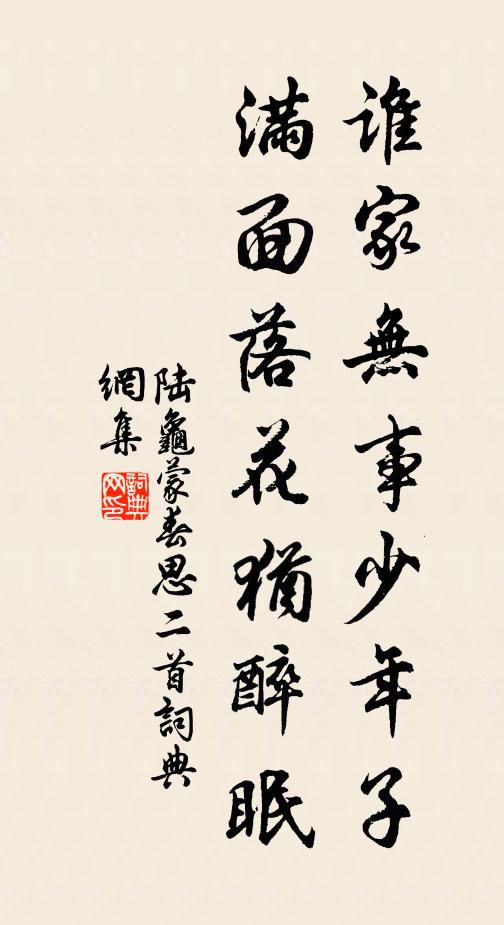 誰家無事少年子
滿面落花猶醉眠
陸龜蒙春思二首詞典
網集
詞典
网印